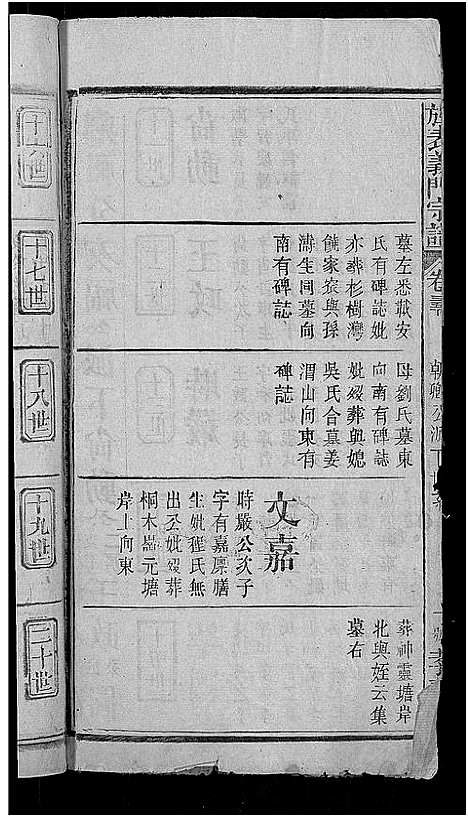 旌表義門宗譜
卷
朝卿公派下
墓左悉載安
氏有碑誌妣
亦葬杉樹灣
饒家寮與孫
濤生同墓向
南有碑誌
母劉氏墓東
向南有碑誌
妣歿葬與媳
吳氏合墓姜
渭山向東有
碑誌
文嘉
時嚴公次子
字有嘉廩膳
生妣程氏無
出公妣歿葬
桐木崙元塘
岸上向東
葬神靈塘岸
北與姪云集
墓右
十六世
十七世
十八世
十九世
二十世